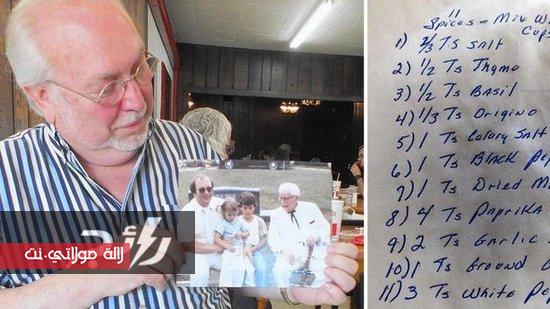 رائج
لالة مولاتي.نت
11
Spices - Mix W
Cups
1) 2/3 Ts Salt
2) 1/2 Ts Thyme
3) 1/2 Ts Basil
4) 1/3 Ts Origino
5) 1 Ts Celery Salt
6) 1 Ts Black Pe
7) 1 Ts Dried M
8) 4 Ts Paprika
9) 2 Ts Garlic
10) 1 Ts Ground G
11) 3 Ts White Pe